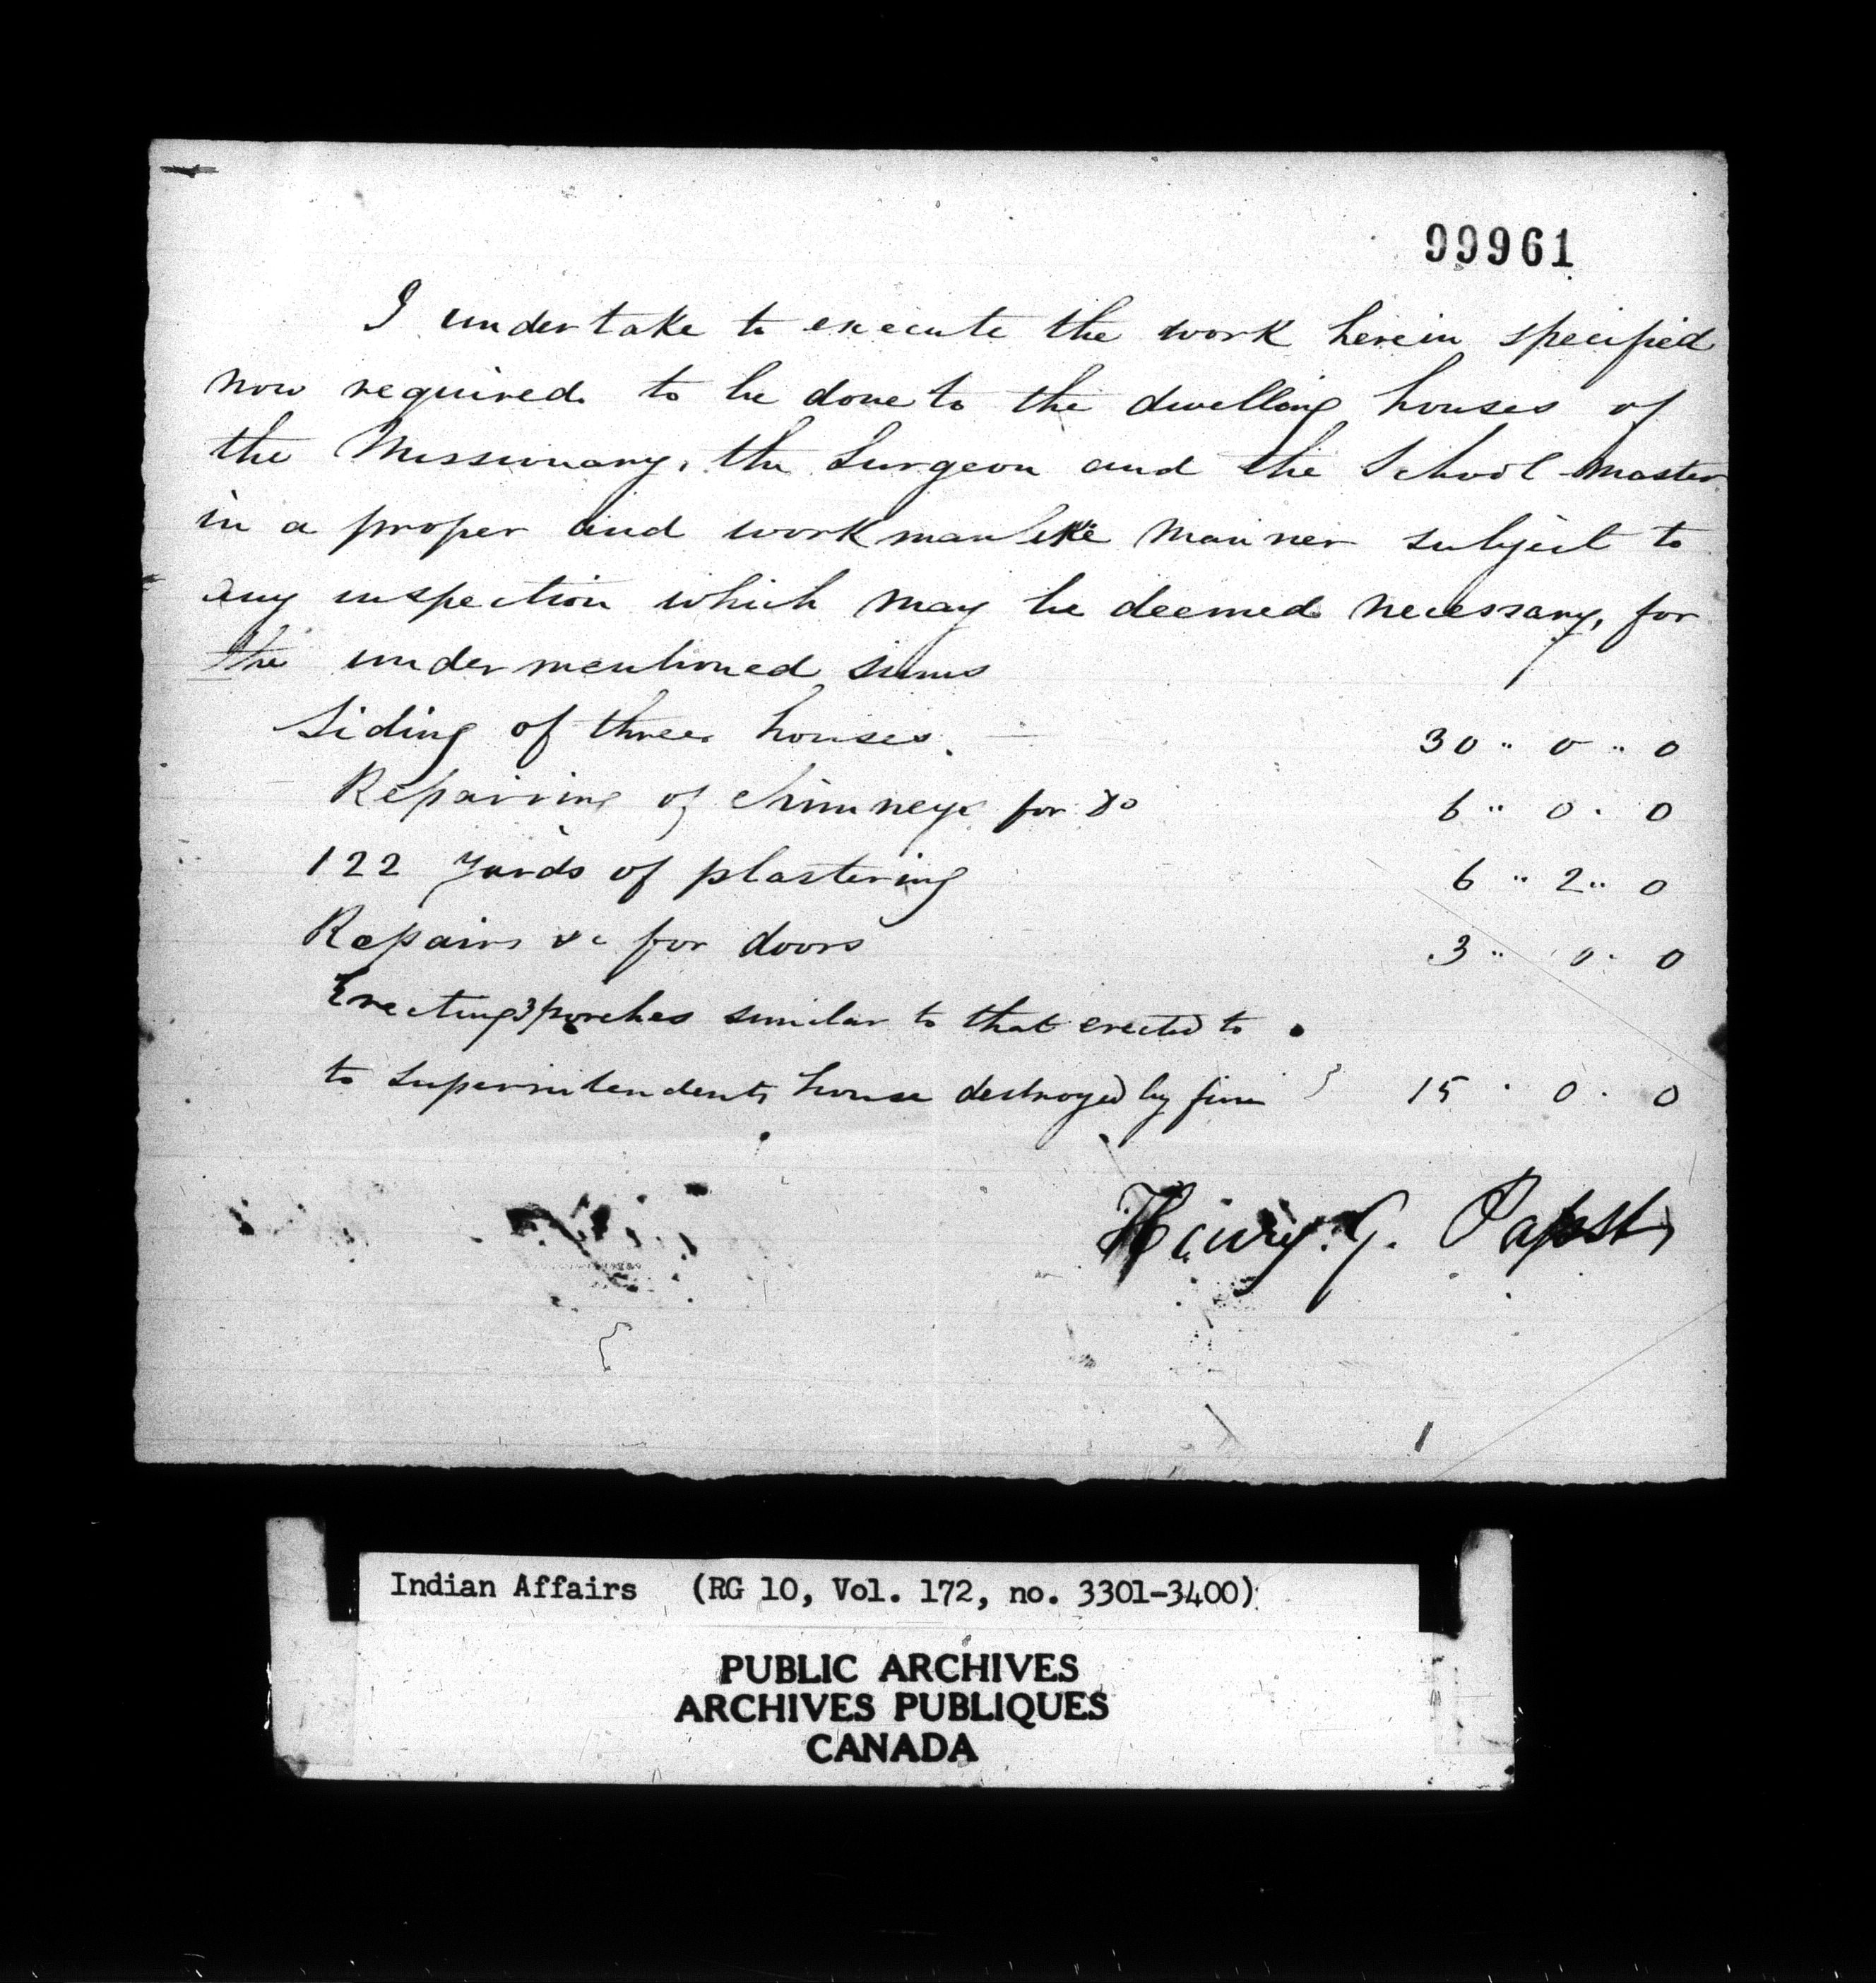 99961
I undertake to execute the work herein specified
now required to be done to the dwelling houses of
the Missionary, the Surgeon and the School-Master
in a proper and workmanlike manner subject to
any inspection which may be deemed necessary, for
the undermentioned sums
Siding of three houses. 30 " 0 " 0
Repairing of chimneys for Do 6 " 0 . 0
122 yards of plastering 6 " 2 " 0
Repairs &c for doors 3 " 0 . 0
Erecting 3 porches similar to that erected to
to Superintendents house destroyed by fire } 15 . 0 . 0
Henry. G. Papst
Indian Affairs (RG 10, Vol. 172, no. 3301-3400)
PUBLIC ARCHIVES
ARCHIVES PUBLIQUES
CANADA